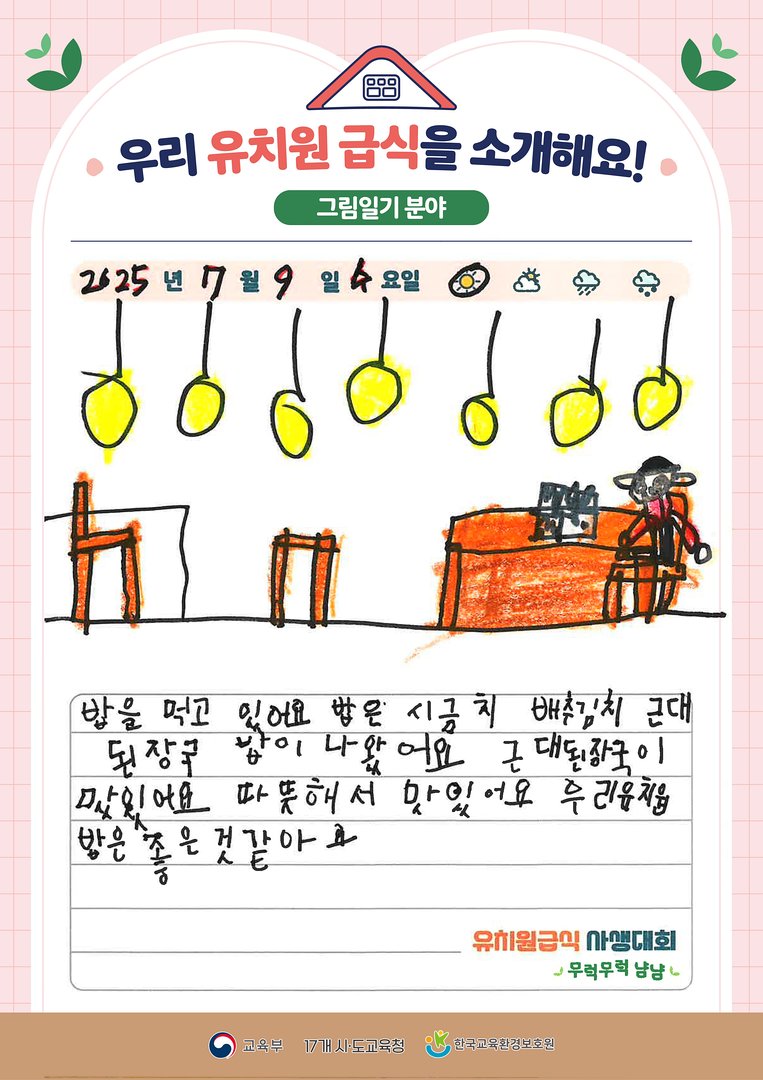 우리 유치원 급식을 소개해요!
그림일기 분야
2025 년 7 월 9 일 수 요일
밥을 먹고 있어요 밥은 시금치 배추김치 근대
된장국 밥이 나왔어요 근대된장국이
맛있어요 따뜻해서 맛있어요 우리유치원
밥은 좋은것같아요
유치원급식 사생대회
무럭무럭 냠냠
교육부 17개 시·도교육청 한국교육환경보호원